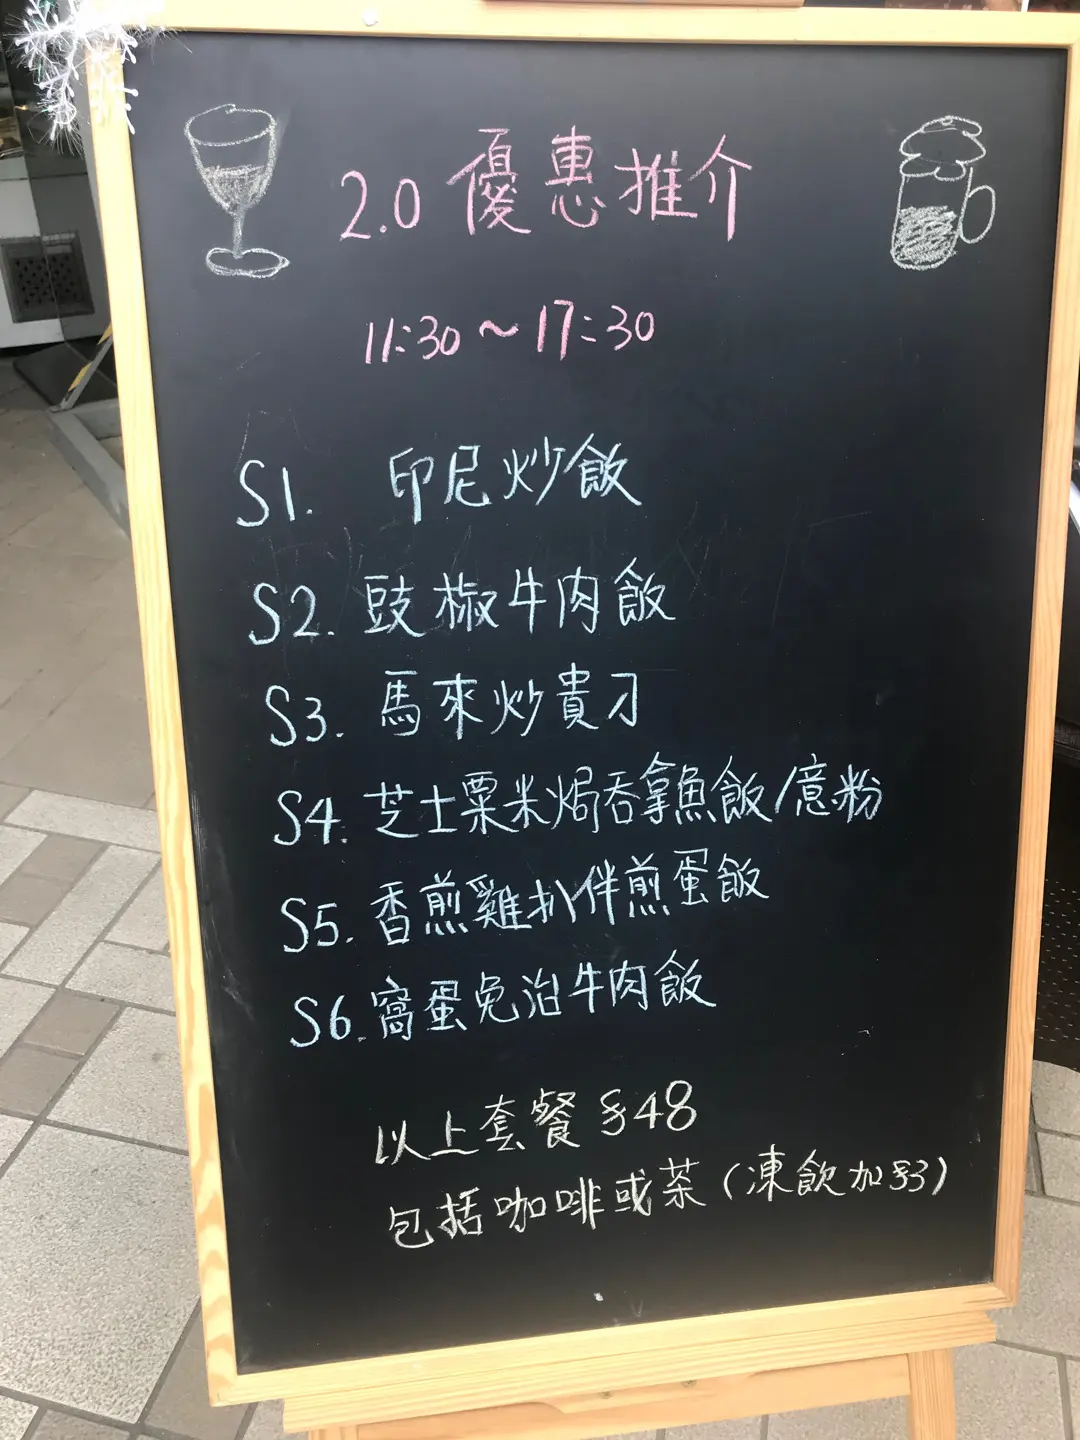 2.0 優惠推介
11:30～17:30
S1. 印尼炒飯
S2. 豉椒牛肉飯
S3. 馬來炒貴刁
S4. 芝士粟米焗吞拿魚飯/意粉
S5. 香煎雞扒伴煎蛋飯
S6. 窩蛋免治牛肉飯
以上套餐 $48
包括咖啡或茶(凍飲加$3)